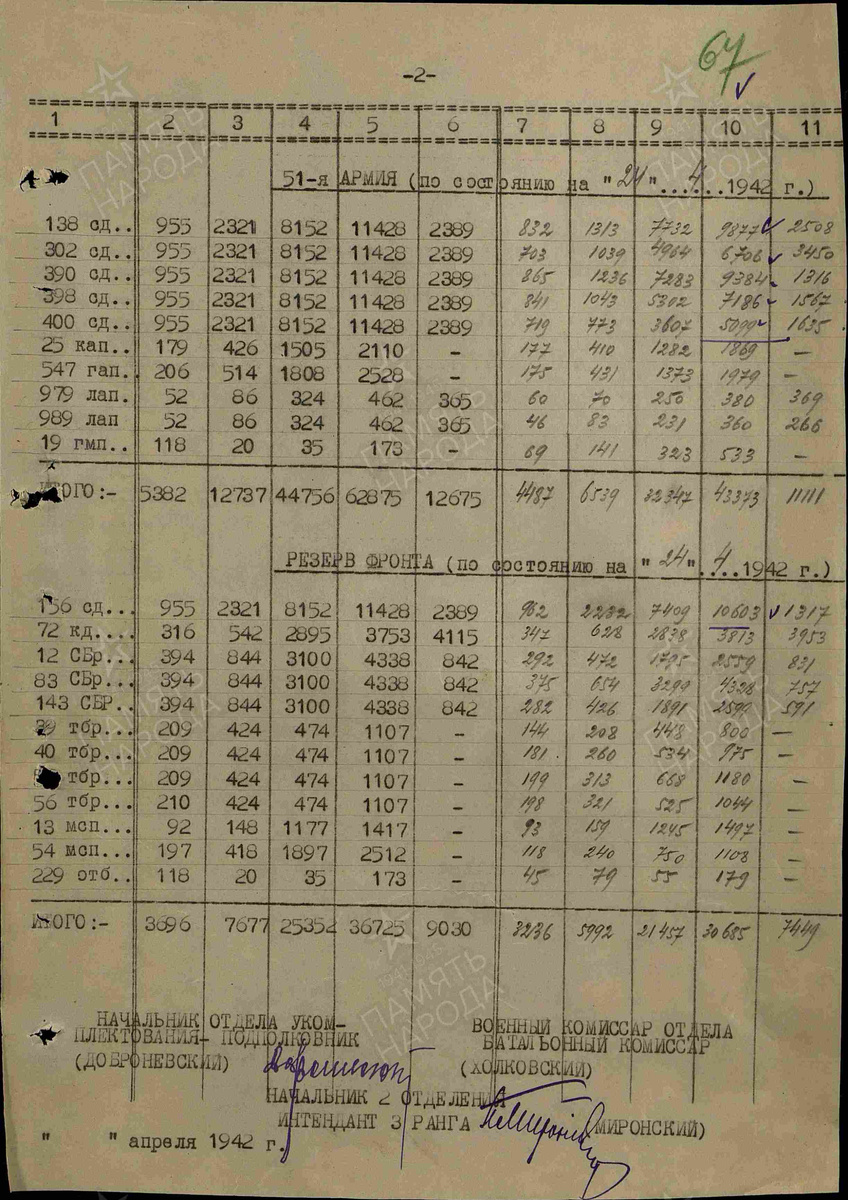 -2-
67
1 2 3 4 5 6 7 8 9 10 11
51-я АРМИЯ (по состоянию на "24"...4...1942 г.)
138 сд.. 955 2321 8152 11428 2389 832 1313 7732 9877 2508
302 сд.. 955 2321 8152 11428 2389 703 1039 4964 6706 3450
390 сд.. 955 2321 8152 11428 2389 865 1236 7283 9384 1316
398 сд.. 955 2321 8152 11428 2389 841 1043 5302 7186 1567
400 сд.. 955 2321 8152 11428 2389 719 773 3607 5099 1635
25 кап.. 179 426 1505 2110 - 177 410 1282 1869 -
547 гап. 206 514 1808 2528 - 175 431 1373 1979 -
979 лап. 52 86 324 462 365 60 70 250 380 369
989 лап 52 86 324 462 365 46 83 231 360 266
19 гмп.. 118 20 35 173 - 69 141 323 533 -
ИТОГО:- 5382 12737 44756 62875 12675 4487 6539 32347 43373 11111
РЕЗЕРВ ФРОНТА (по состоянию на "24"..4..1942 г.)
156 сд... 955 2321 8152 11428 2389 962 2232 7409 10603 1317
72 кд.... 316 542 2895 3753 4115 347 628 2838 3813 3953
12 СБр... 394 844 3100 4338 842 292 472 1795 2559 831
83 СБр... 394 844 3100 4338 842 375 654 3299 4328 757
143 СБР.. 394 844 3100 4338 842 282 426 1891 2599 591
39 тбр... 209 424 474 1107 - 144 208 448 800 -
40 тбр... 209 424 474 1107 - 181 260 534 975 -
тбр... 209 424 474 1107 - 199 313 668 1180 -
56 тбр... 210 424 474 1107 - 198 321 525 1044 -
13 мсп... 92 148 1177 1417 - 93 159 1245 1497 -
54 мсп... 197 418 1897 2512 - 118 240 750 1108 -
229 отб.. 118 20 35 173 - 45 79 55 179 -
ИТОГО:- 3696 7677 25352 36725 9030 3236 5992 21457 30685 7449
НАЧАЛЬНИК ОТДЕЛА УКОМ-
ПЛЕКТОВАНИЯ- ПОДПОЛКОВНИК
(ДОБРОНЕВСКИЙ)
ВОЕННЫЙ КОМИССАР ОТДЕЛА
БАТАЛЬОННЫЙ КОМИССАР
(ХОЛКОВСКИЙ)
НАЧАЛЬНИК 2 ОТДЕЛЕНИЯ
ИНТЕНДАНТ 3 РАНГА (МИРОНСКИЙ)
" " апреля 1942 г.
ПАМЯТЬ НАРОДА